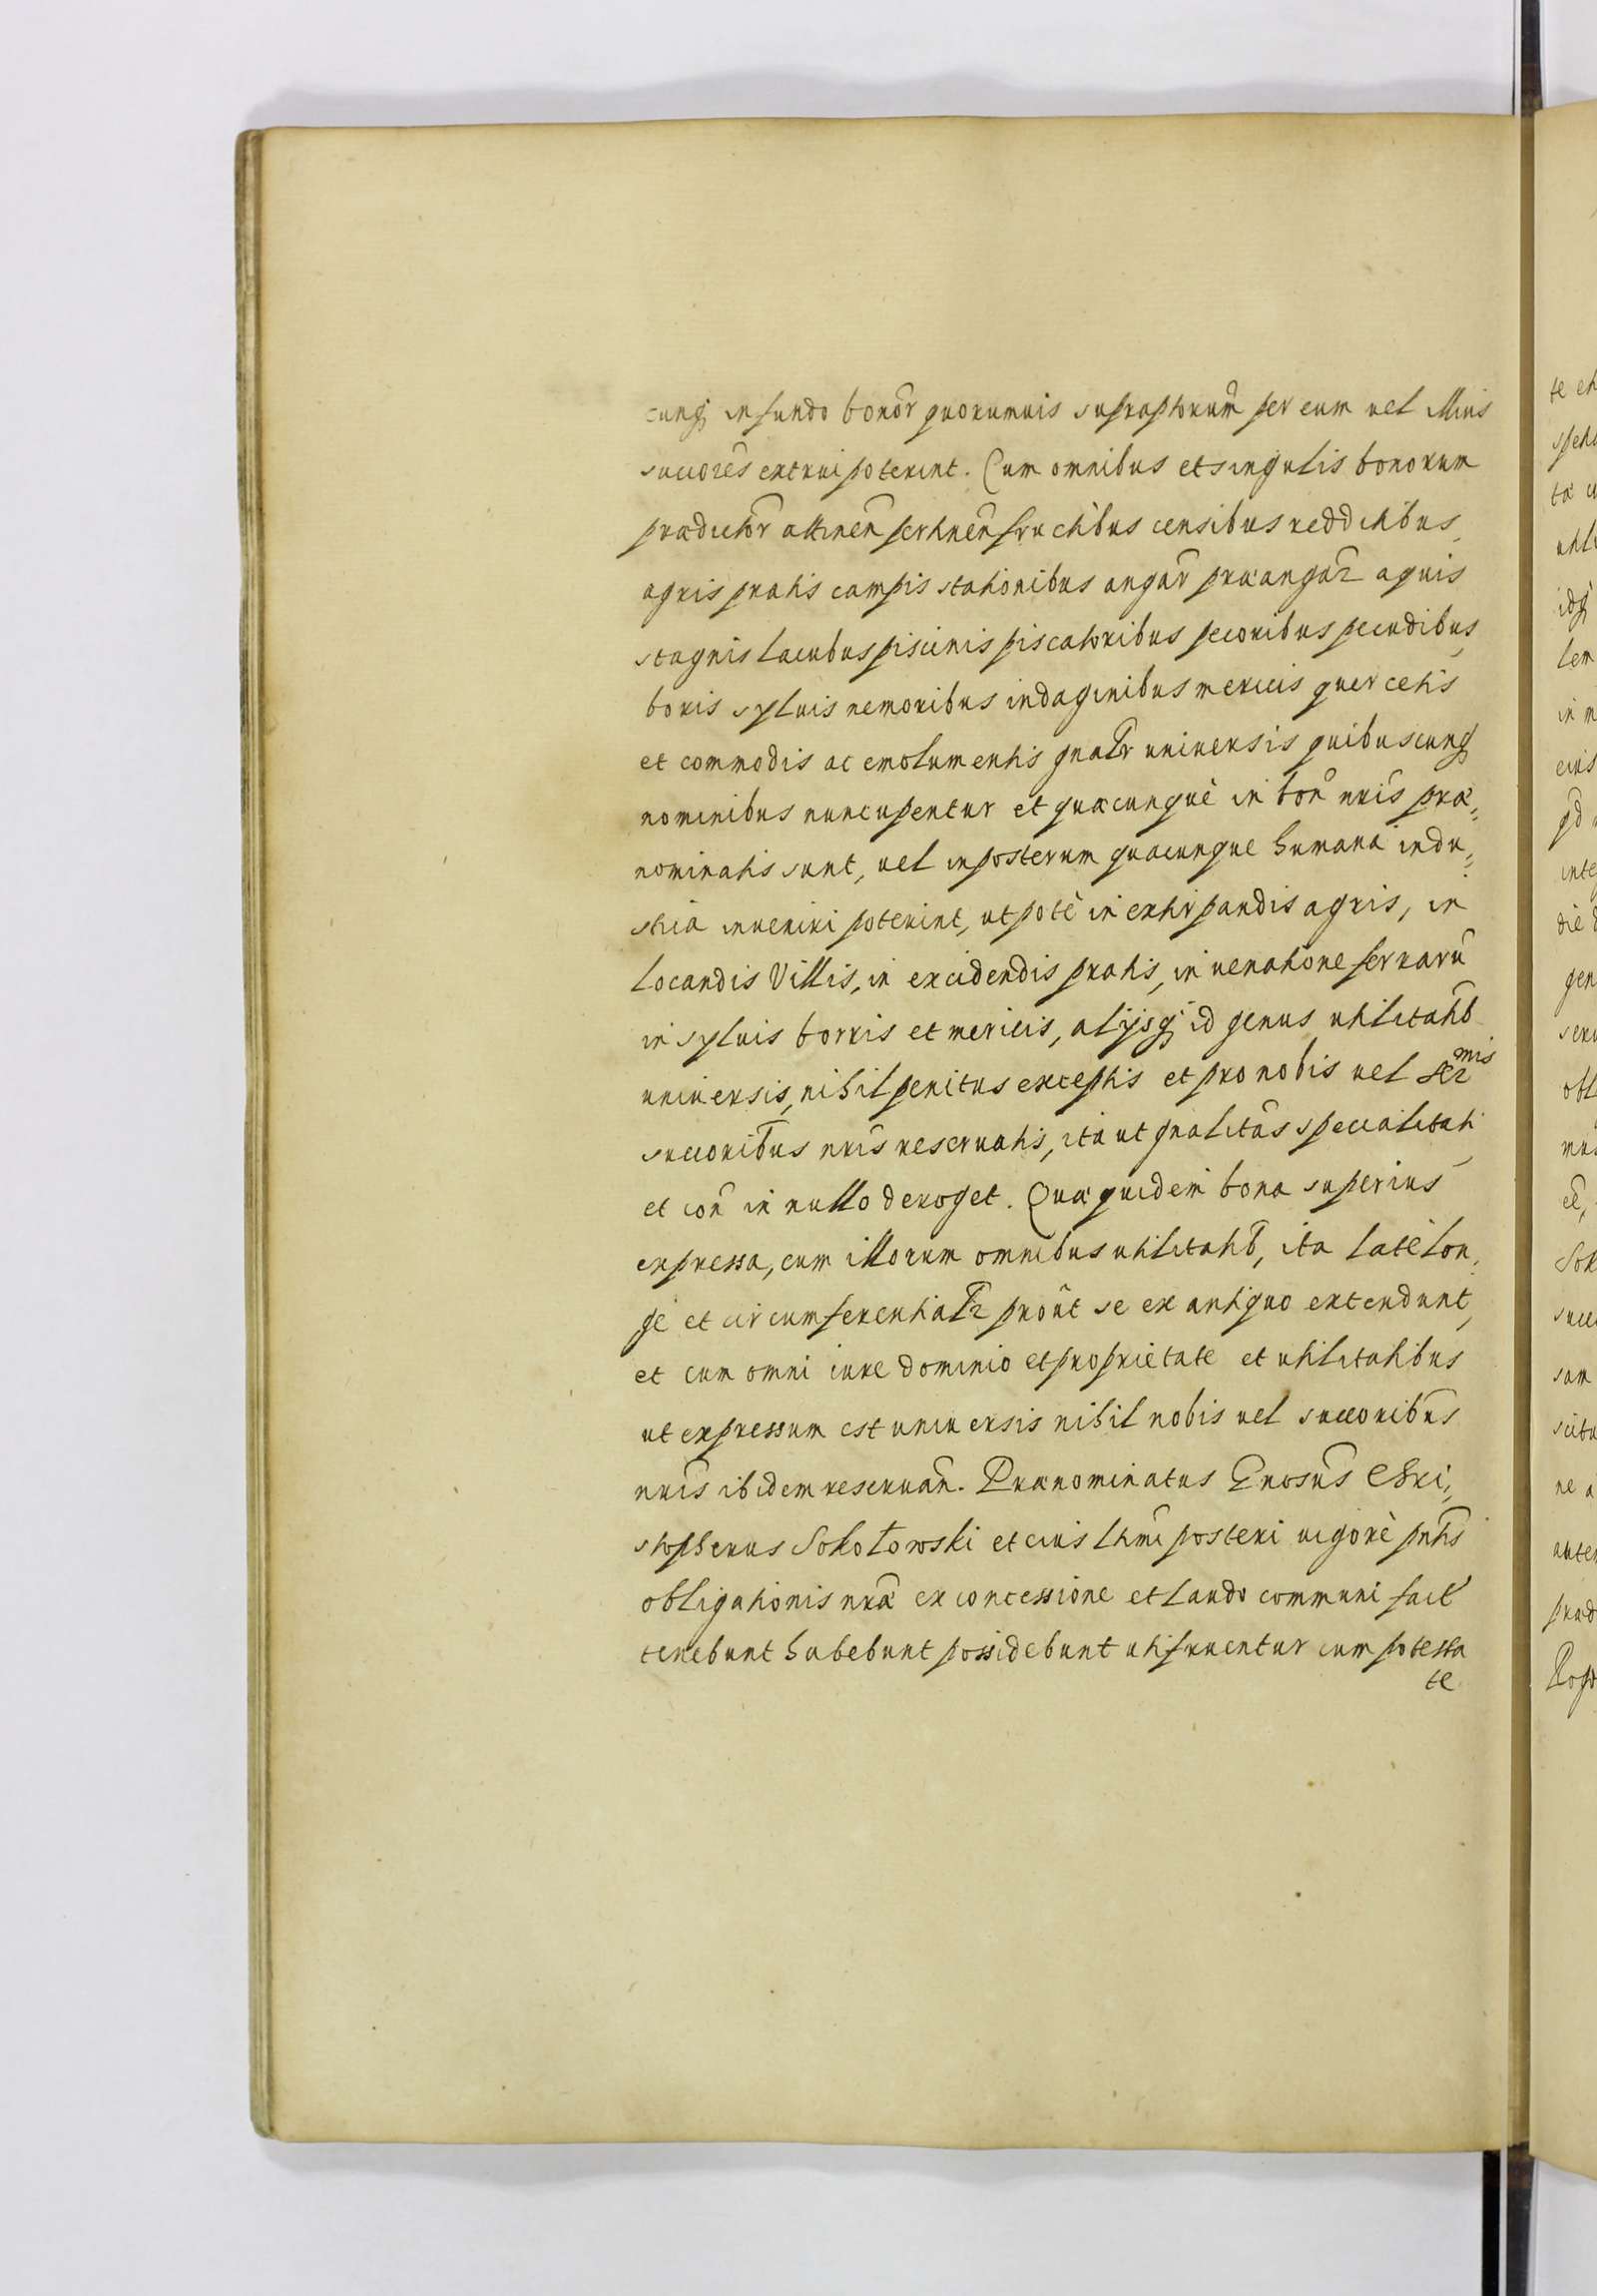 cunq in fundo bonor̃ quorumuis supraptorum̃ per eum uel illius
succorẽs extrui poterint. Cum omnibus et singulis bonorum
prædictor̃ attinen̄ pertinen̄ fructibus censibus redditibus,
agris pratis campis stationibus angar̃ præangar̃ aquis
stagnis lacubus piscinis piscatoribus pecoribus pecudibus,
boris syluis nemoribus indaginibus mericis quercetis
et commodis ac emolumentis gnalr̃ uniuersis quibuscunq
nominibus nuncupentur et quæcunquè in bon̄ nr̃is præ„
nominatis sunt, uel inposterum quacunque humana indu„
stria inueniri poterint, utpotè in extirpandis agris, in
locandis Villis, in excidendis pratis, in uenatione ferrarũ
in syluis borris et mericis, alijsq id genus utilitatib
uniuersis, nihil penitus exceptis et pro nobis uel Ser̃mis
succoribus̃ nr̃is reseruatis, ita ut gnalitãs specialitati,
et con̄ in nullo deroget. Quæ quidem bona superius
expressa, cum illorum omnibus utilitatib, ita latè lon„
gè et circumferentialr̃ proũt se ex antiquo extendunt,
et cum omni iure dominio et proprietate et utilitatibus
ut expressum est uniuersis nihil nobis uel succoribus̃
nr̃is ibidem reseruan̄. Prænominatus Gnosũs Chri„
stopherus Sokołowski et eius ltm̃i posteri uigorè pntĩs
obligationis nr̃æ ex concessione et laudo communi fact̃
tenebunt habebunt possidebunt utifruentur cum potesta
te